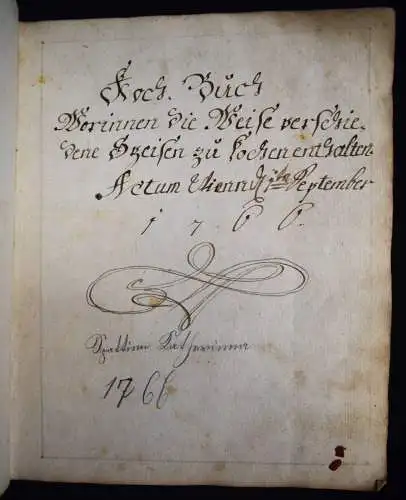 Koch. Buch
Worinnen die Weise verschie,
dene Speisen zu kochen enthalten.
Actum Wienn September
1766.
Katherinna
1766